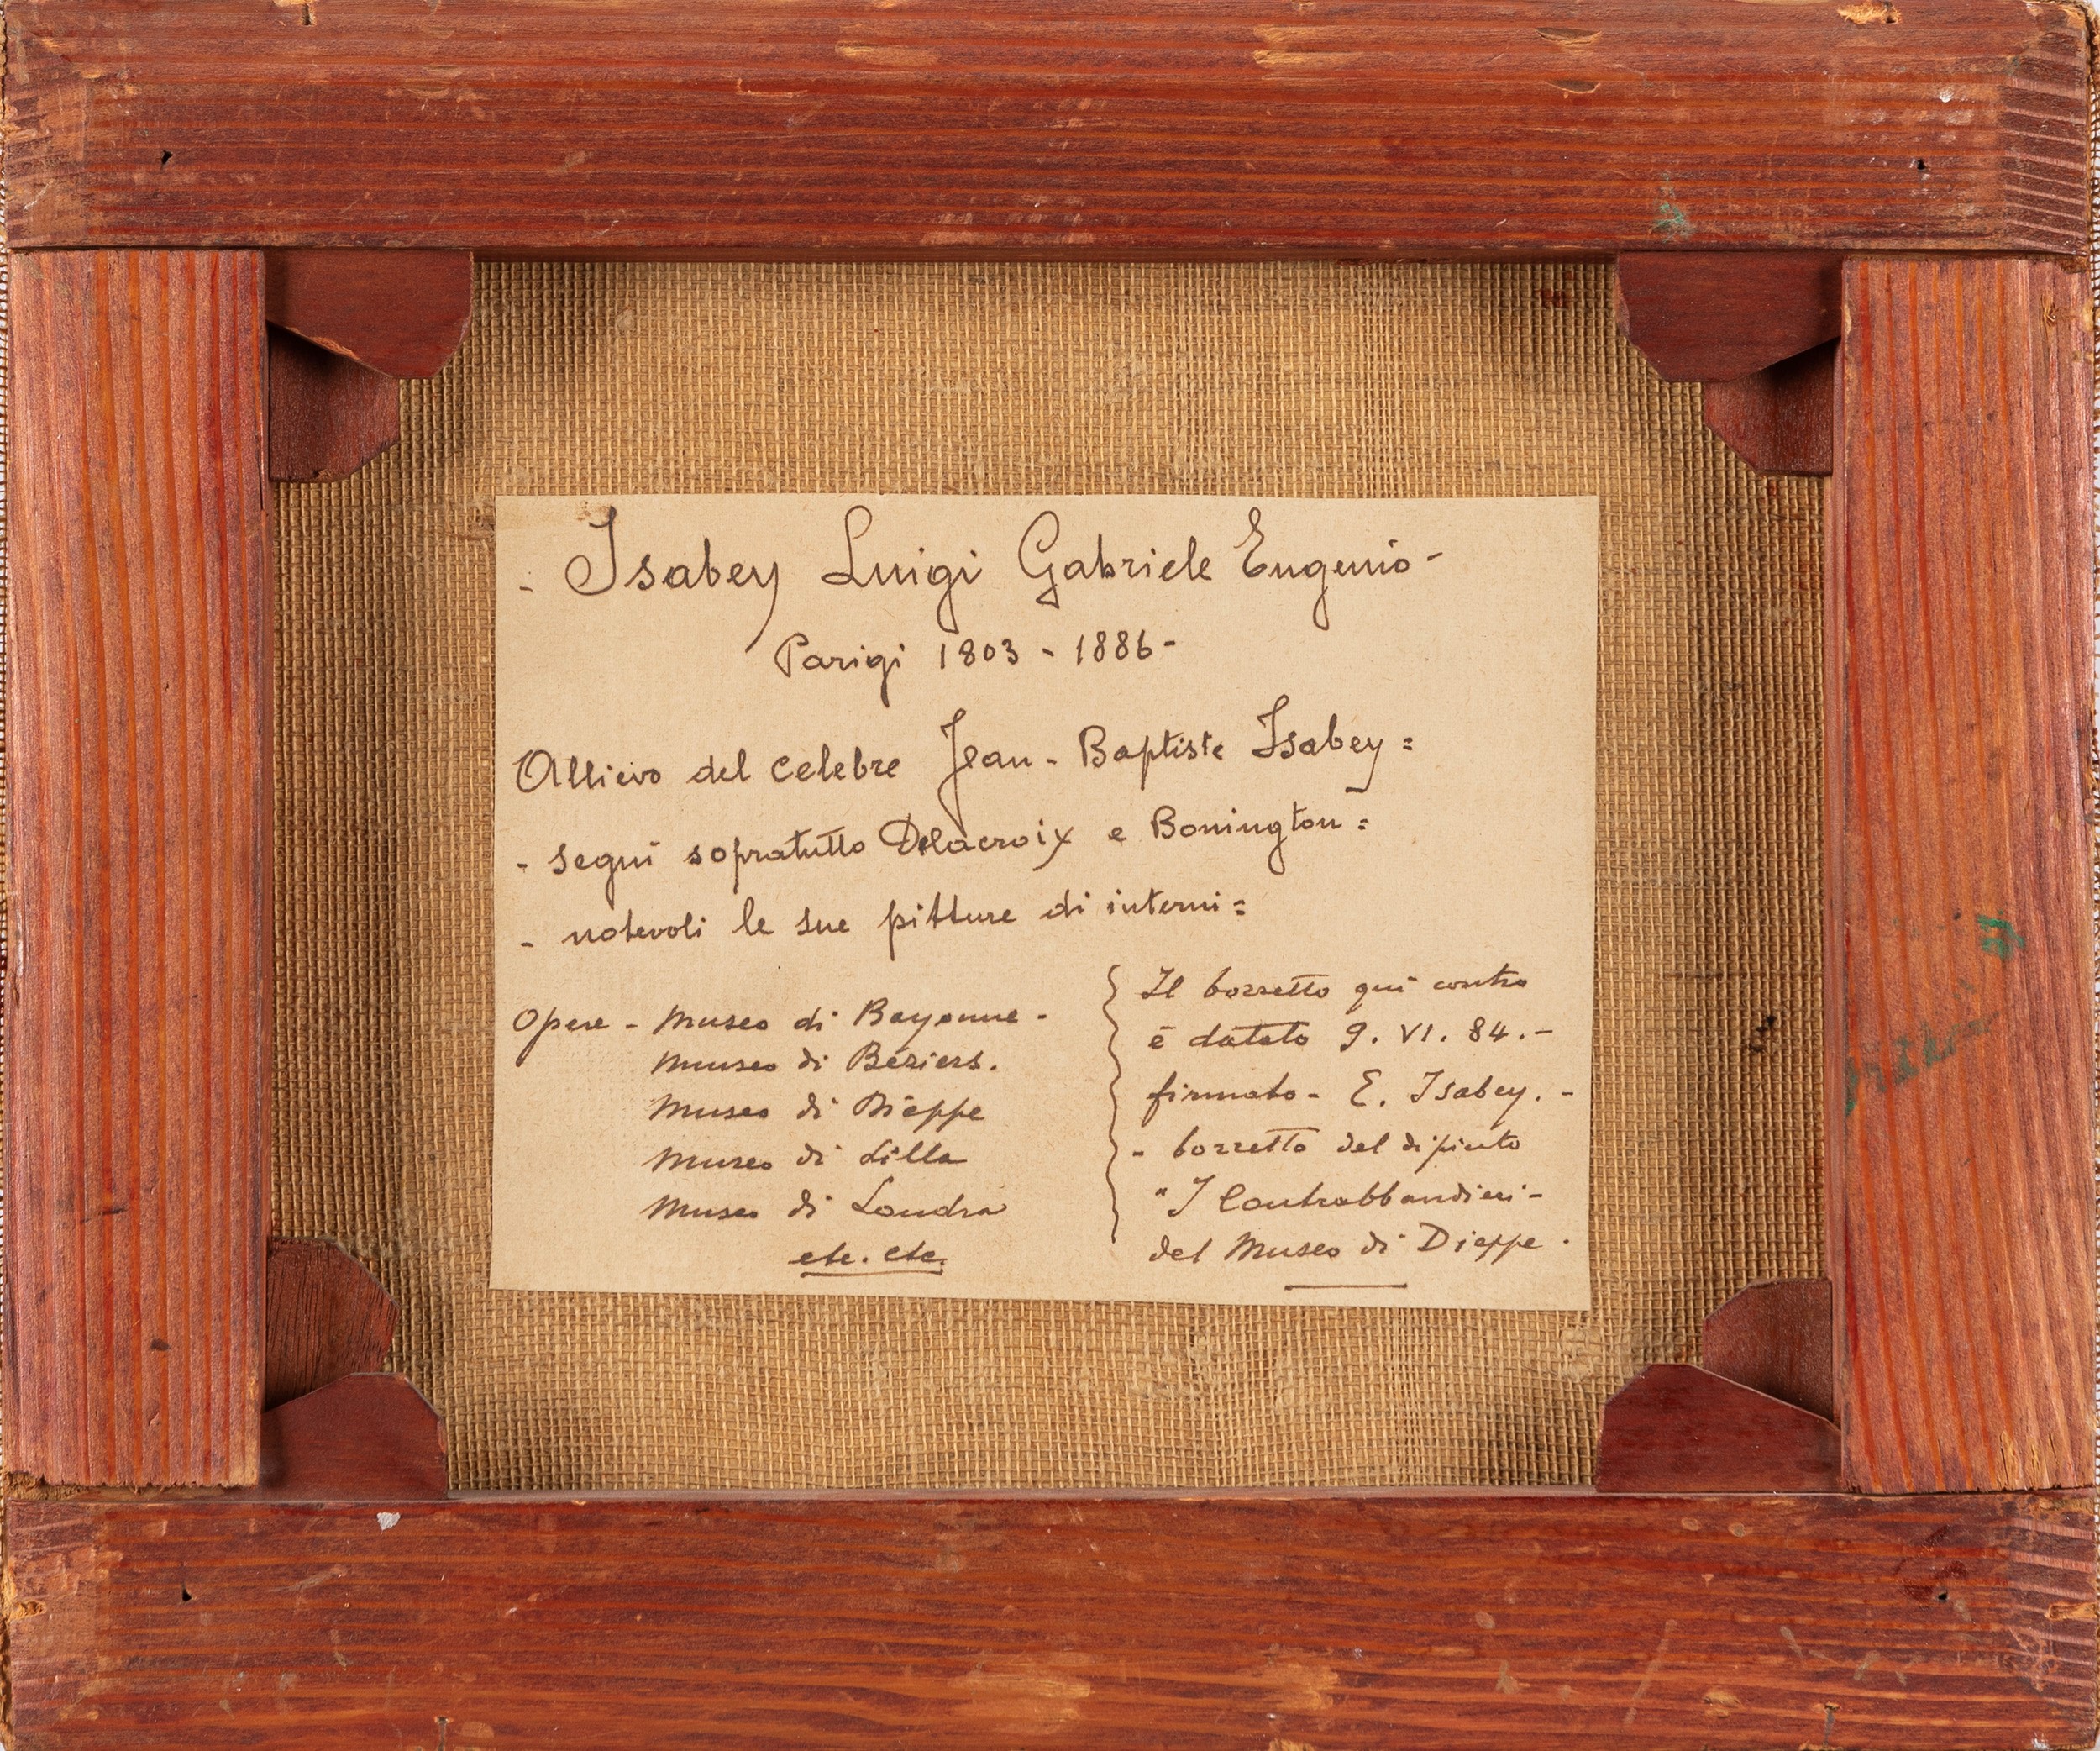 - Isabey Luigi Gabriele Eugenio -
Parigi 1803 - 1886 -
Allievo del celebre Jean - Baptiste Isabey =
- seguì sopratutto Delacroix e Bonington =
- notevoli le sue pitture di interni =
Opere - Museo di Bayonne -
Museo di Béziers.
Museo di Dieppe
Museo di Lilla
Museo di Londra
etc. etc.
Il bozzetto qui contro
è datato 9. VI. 84. -
firmato - E. Isabey. -
- bozzetto del dipinto
" I Contrabbandieri -
del Museo di Dieppe .